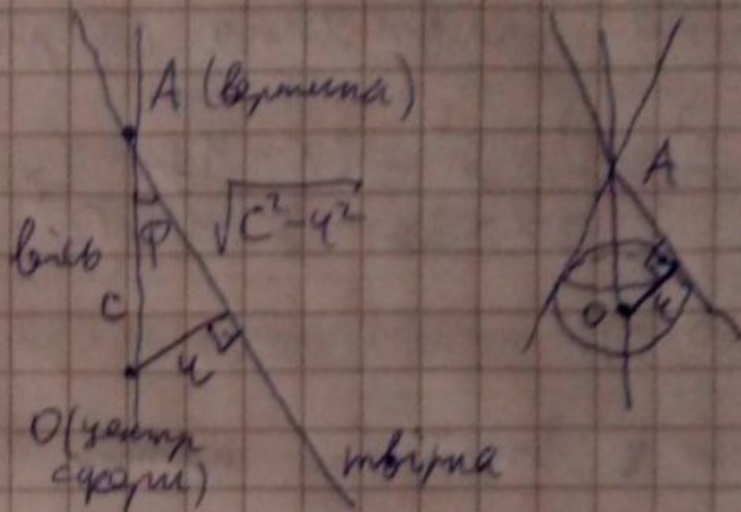 A (вершина)
√c²-r²
φ
вісь
c
r
O(центр
сфери)
твірна
A
O
r